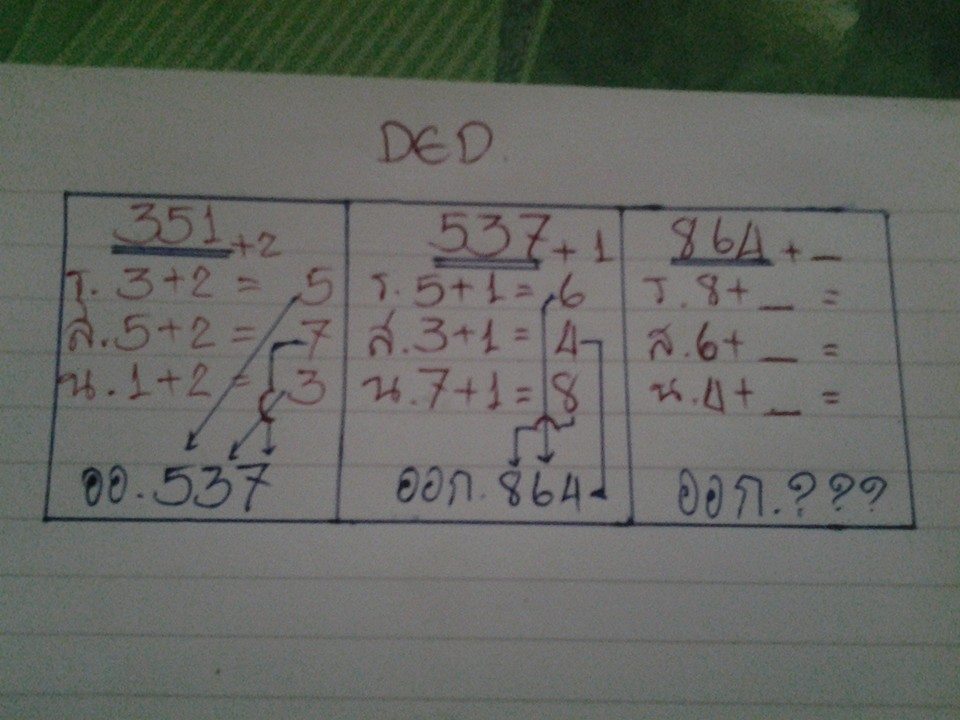 DED.
351 +2
ร. 3+2 = 5
ส. 5+2 = 7
น. 1+2 = 3
ออ. 537
537 + 1
ร. 5+1 = 6
ส. 3+1 = 4
น. 7+1 = 8
ออก. 864
864 + _
ร. 8+ _ =
ส. 6+ _ =
น. 4+ _ =
ออก. ? ? ?